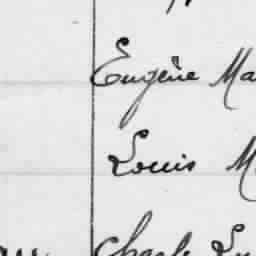 Eugène Ma
Louis M
Charls Lu